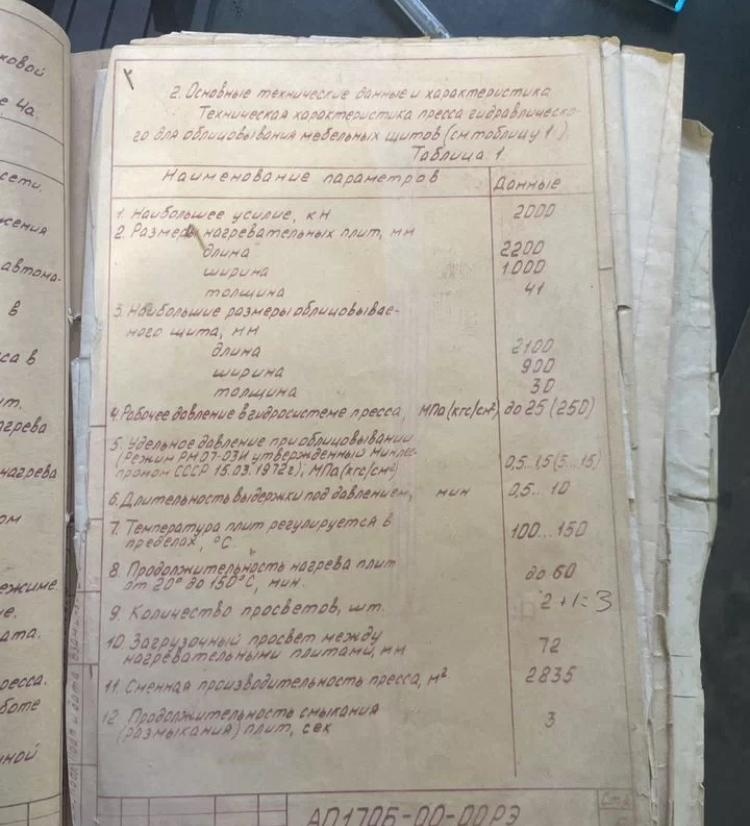 ковой
е 4а.
сети.
жения
автома-
в
са в
ит.
агрева
нагрева
ом
ежиме.
ие.
ата.
ресса.
боте
нной
2. Основные технические данные и характеристика
Техническая характеристика пресса гидравлическо-
го для облицовывания мебельных щитов (см таблицу 1).
Таблица 1.
Наименование параметров Данные
1. Наибольшее усилие, кн 2000
2. Размеры нагревательных плит, мм
длина 2200
ширина 1000
толщина 41
3. Наибольшие размеры облицовывае-
мого щита, мм
длина 2100
ширина 900
толщина 30
4. Рабочее давление в гидросистеме пресса, МПа (кгс/см²) до 25 (250)
5. Удельное давление при облицовывании
(Режим РМ 07-03И утвержденный Минлес-
промом СССР 15.03.1972г), МПа (кгс/см²) 0,5...1,5 (5...15)
6. Длительность выдержки под давлением, мин 0,5... 10
7. Температура плит регулируется в
пределах, °С 100...150
8. Продолжительность нагрева плит
от 20° до 150°С, мин. до 60
9. Количество просветов, шт. 2+1=3
10. Загрузочный просвет между
нагревательными плитами, мм 72
11. Сменная производительность пресса, м² 2835
12. Продолжительность смыкания
(размыкания) плит, сек 3
АП170Б-00-00РЭ